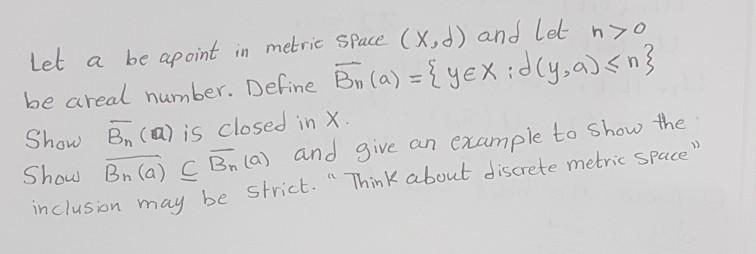 Let a be apoint in metric space (X,d) and let n>0
be areal number. Define B̅n (a) = { y∈X : d(y,a) ≤ n }
Show B̅n (a) is closed in X.
Show \overline{Bn (a)} ⊆ B̅n (a) and give an example to show the
inclusion may be strict. "Think about discrete metric space"